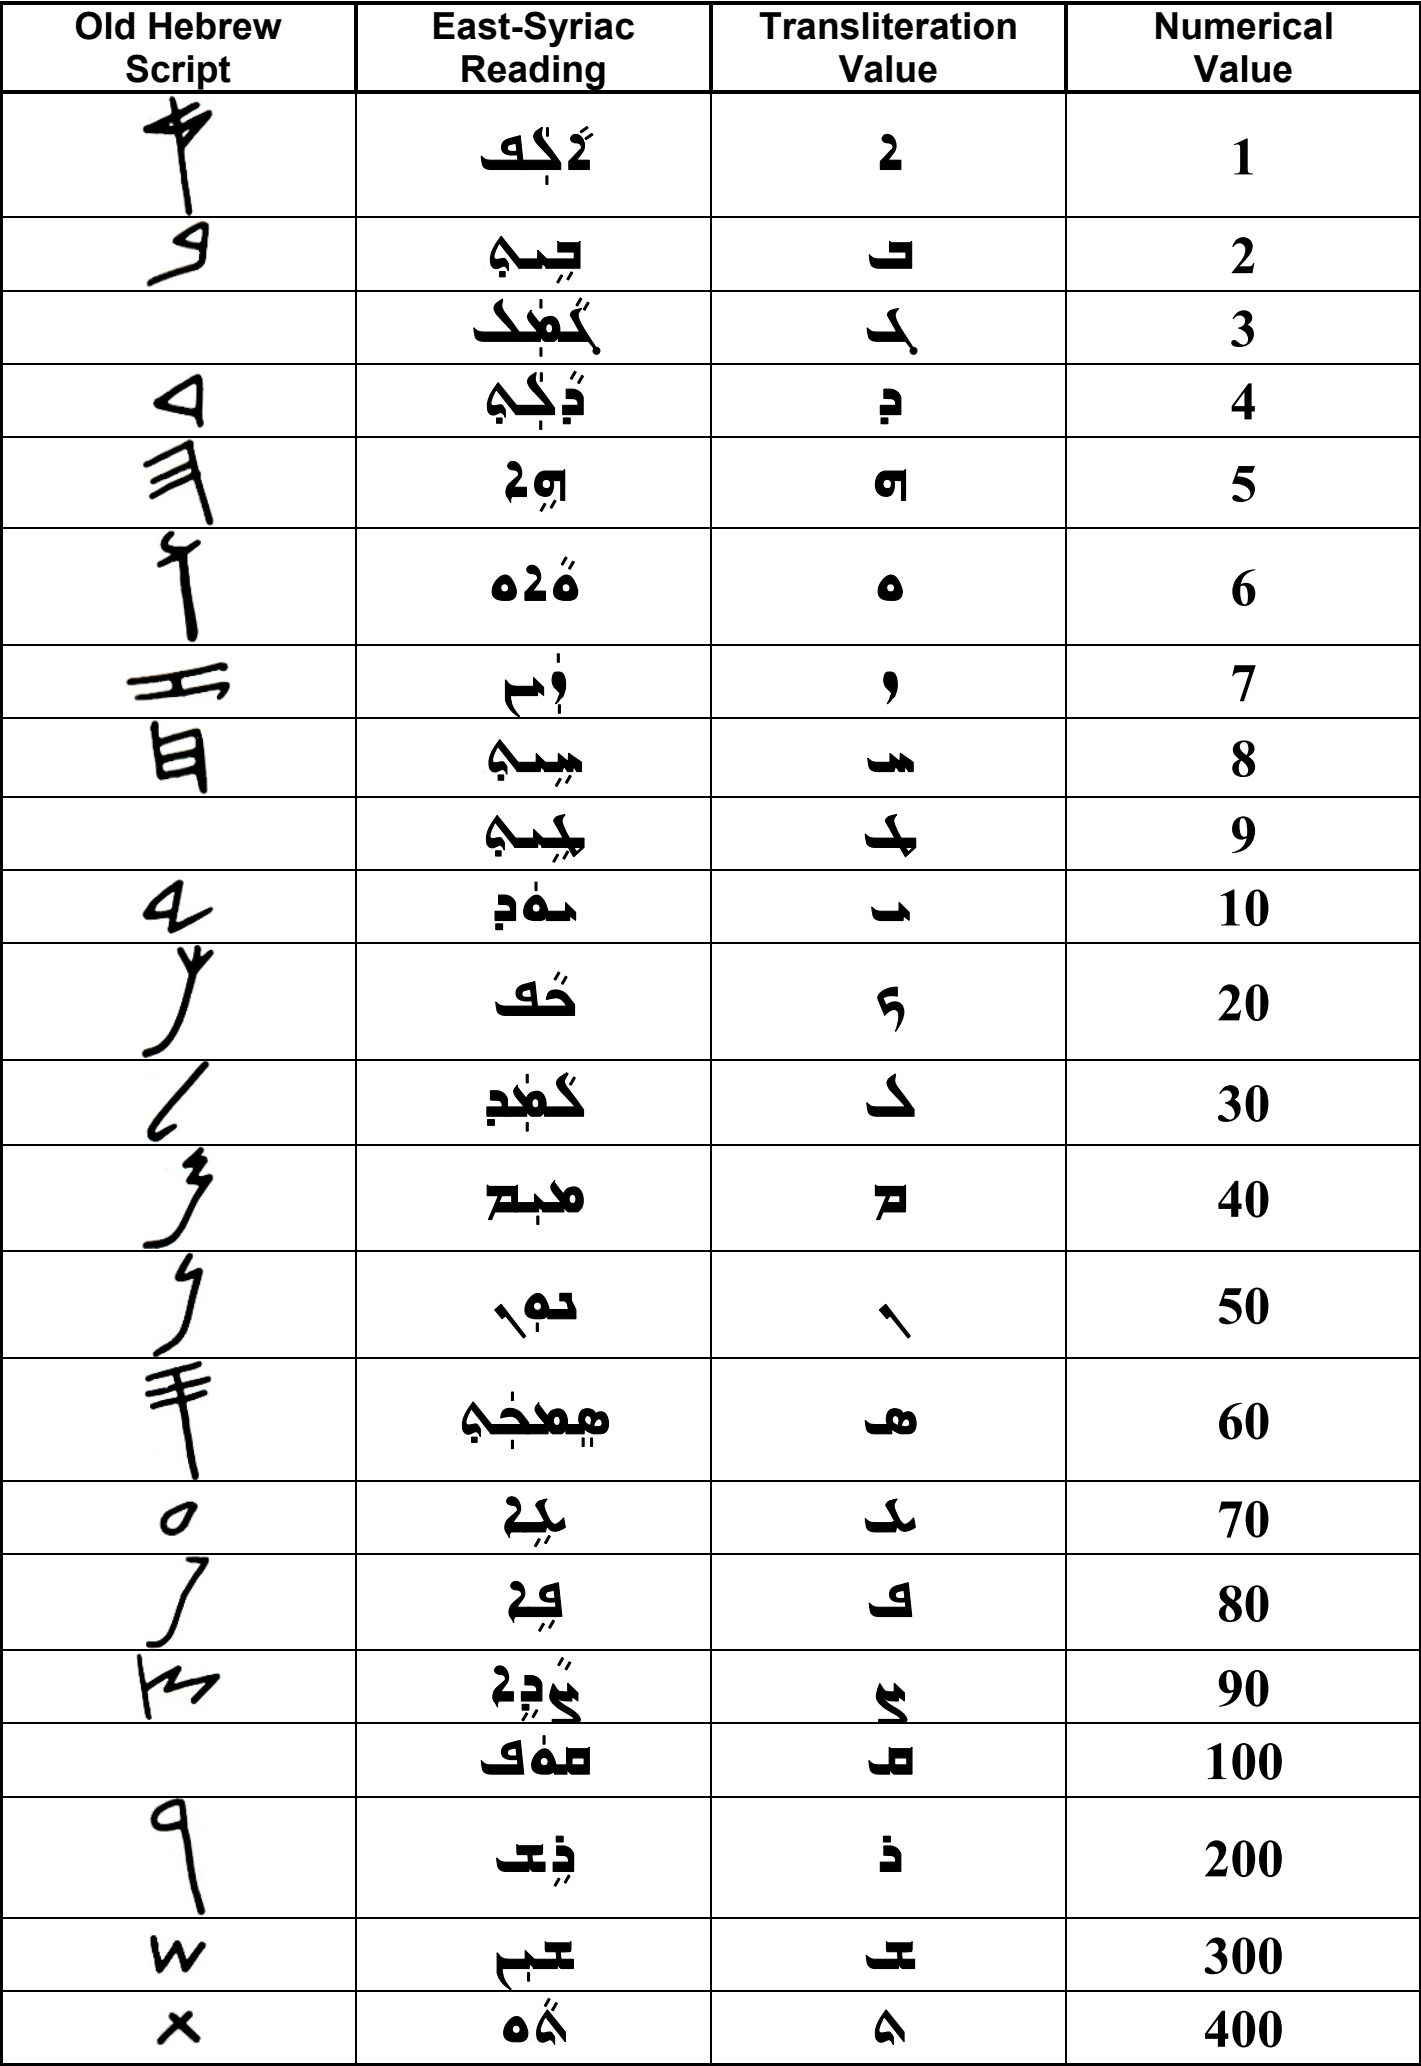 Old Hebrew Script East-Syriac Reading Transliteration Value Numerical Value
𐤀 ܐܵܠܲܦ ܐ 1
𐤁 ܒܹܝܬ݂ ܒ 2
ܓܵܡܲܠ ܓ 3
𐤃 ܕܵܠܲܬ݂ ܕ 4
𐤄 ܗܹܐ ܗ 5
𐤅 ܘܵܐܘ ܘ 6
𐤆 ܙܲܝܢ ܙ 7
𐤇 ܚܹܝܬ݂ ܚ 8
ܛܹܝܬ݂ ܛ 9
𐤉 ܝܘܿܕ ܝ 10
𐤊 ܟܵܦ ܟ 20
𐤋 ܠܵܡܲܕ ܠ 30
𐤌 ܡܝܼܡ ܡ 40
𐤍 ܢܘܼܢ ܢ 50
𐤎 ܣܸܡܟܲܬ݂ ܣ 60
𐤏 ܥܹܐ ܥ 70
𐤐 ܦܹܐ ܦ 80
𐤑 ܨܵܕܹܐ ܨ 90
ܩܘܿܦ ܩ 100
𐤓 ܪܹܫ ܪ 200
𐤔 ܫܝܼܢ ܫ 300
𐤕 ܬܵܘ ܬ 400